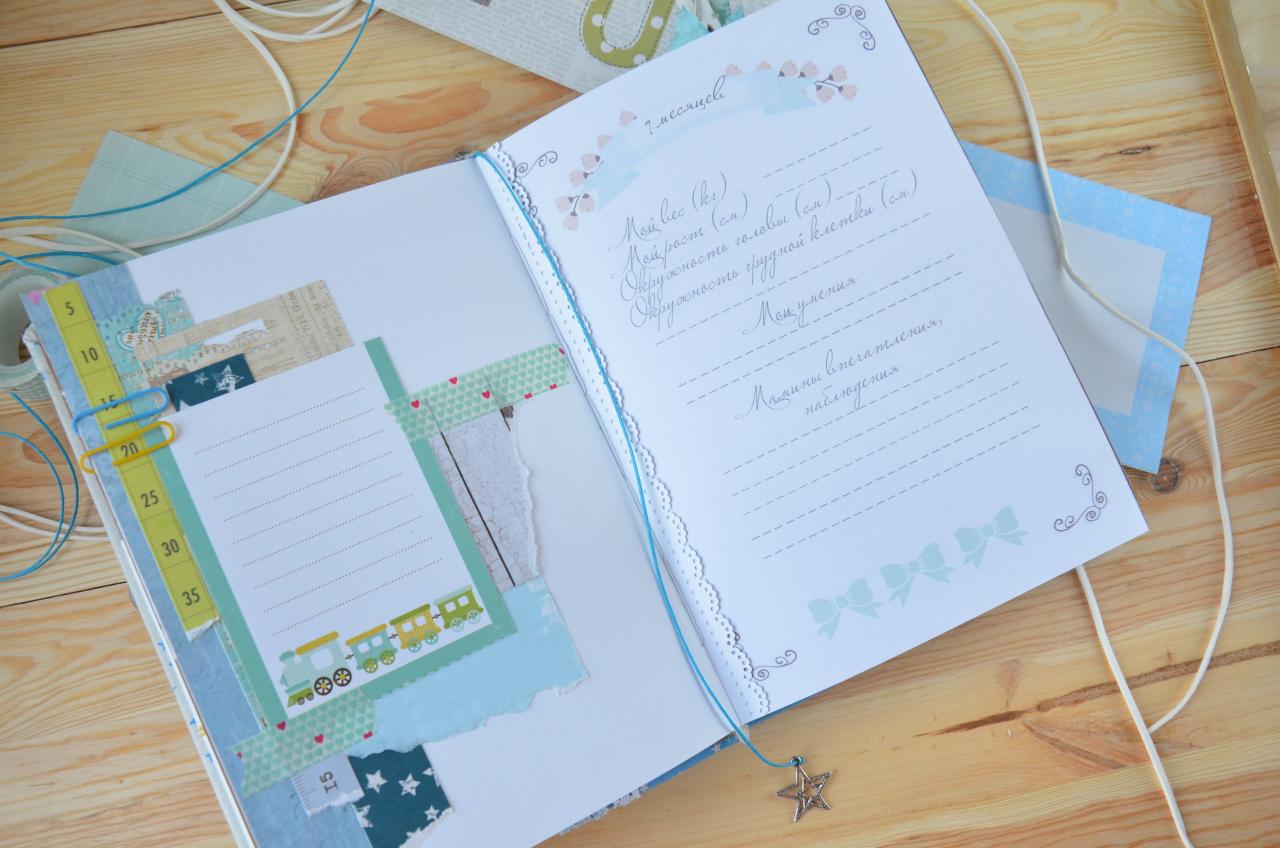 5
10
15
20
25
30
35
15
7 месяцев
Мой вес (кг)
Мой рост (см)
Окружность головы (см)
Окружность грудной клетки (см)
Мои умения
Мамины впечатления,
наблюдения